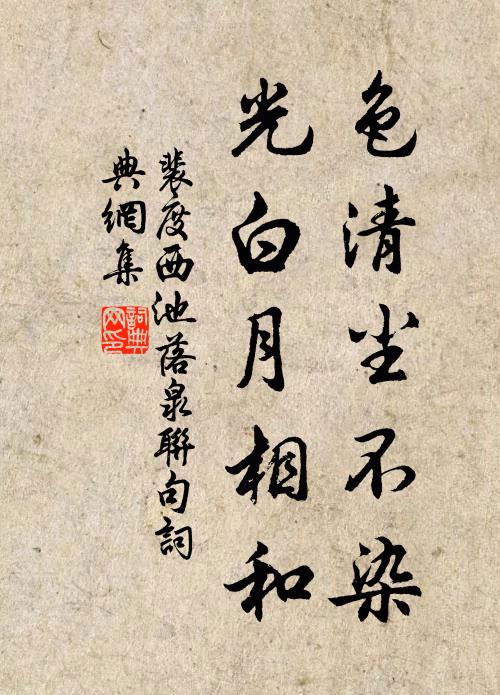 色清尘不染
光白月相和
裴度西池落泉聯句詞
典網集
詞典
网印